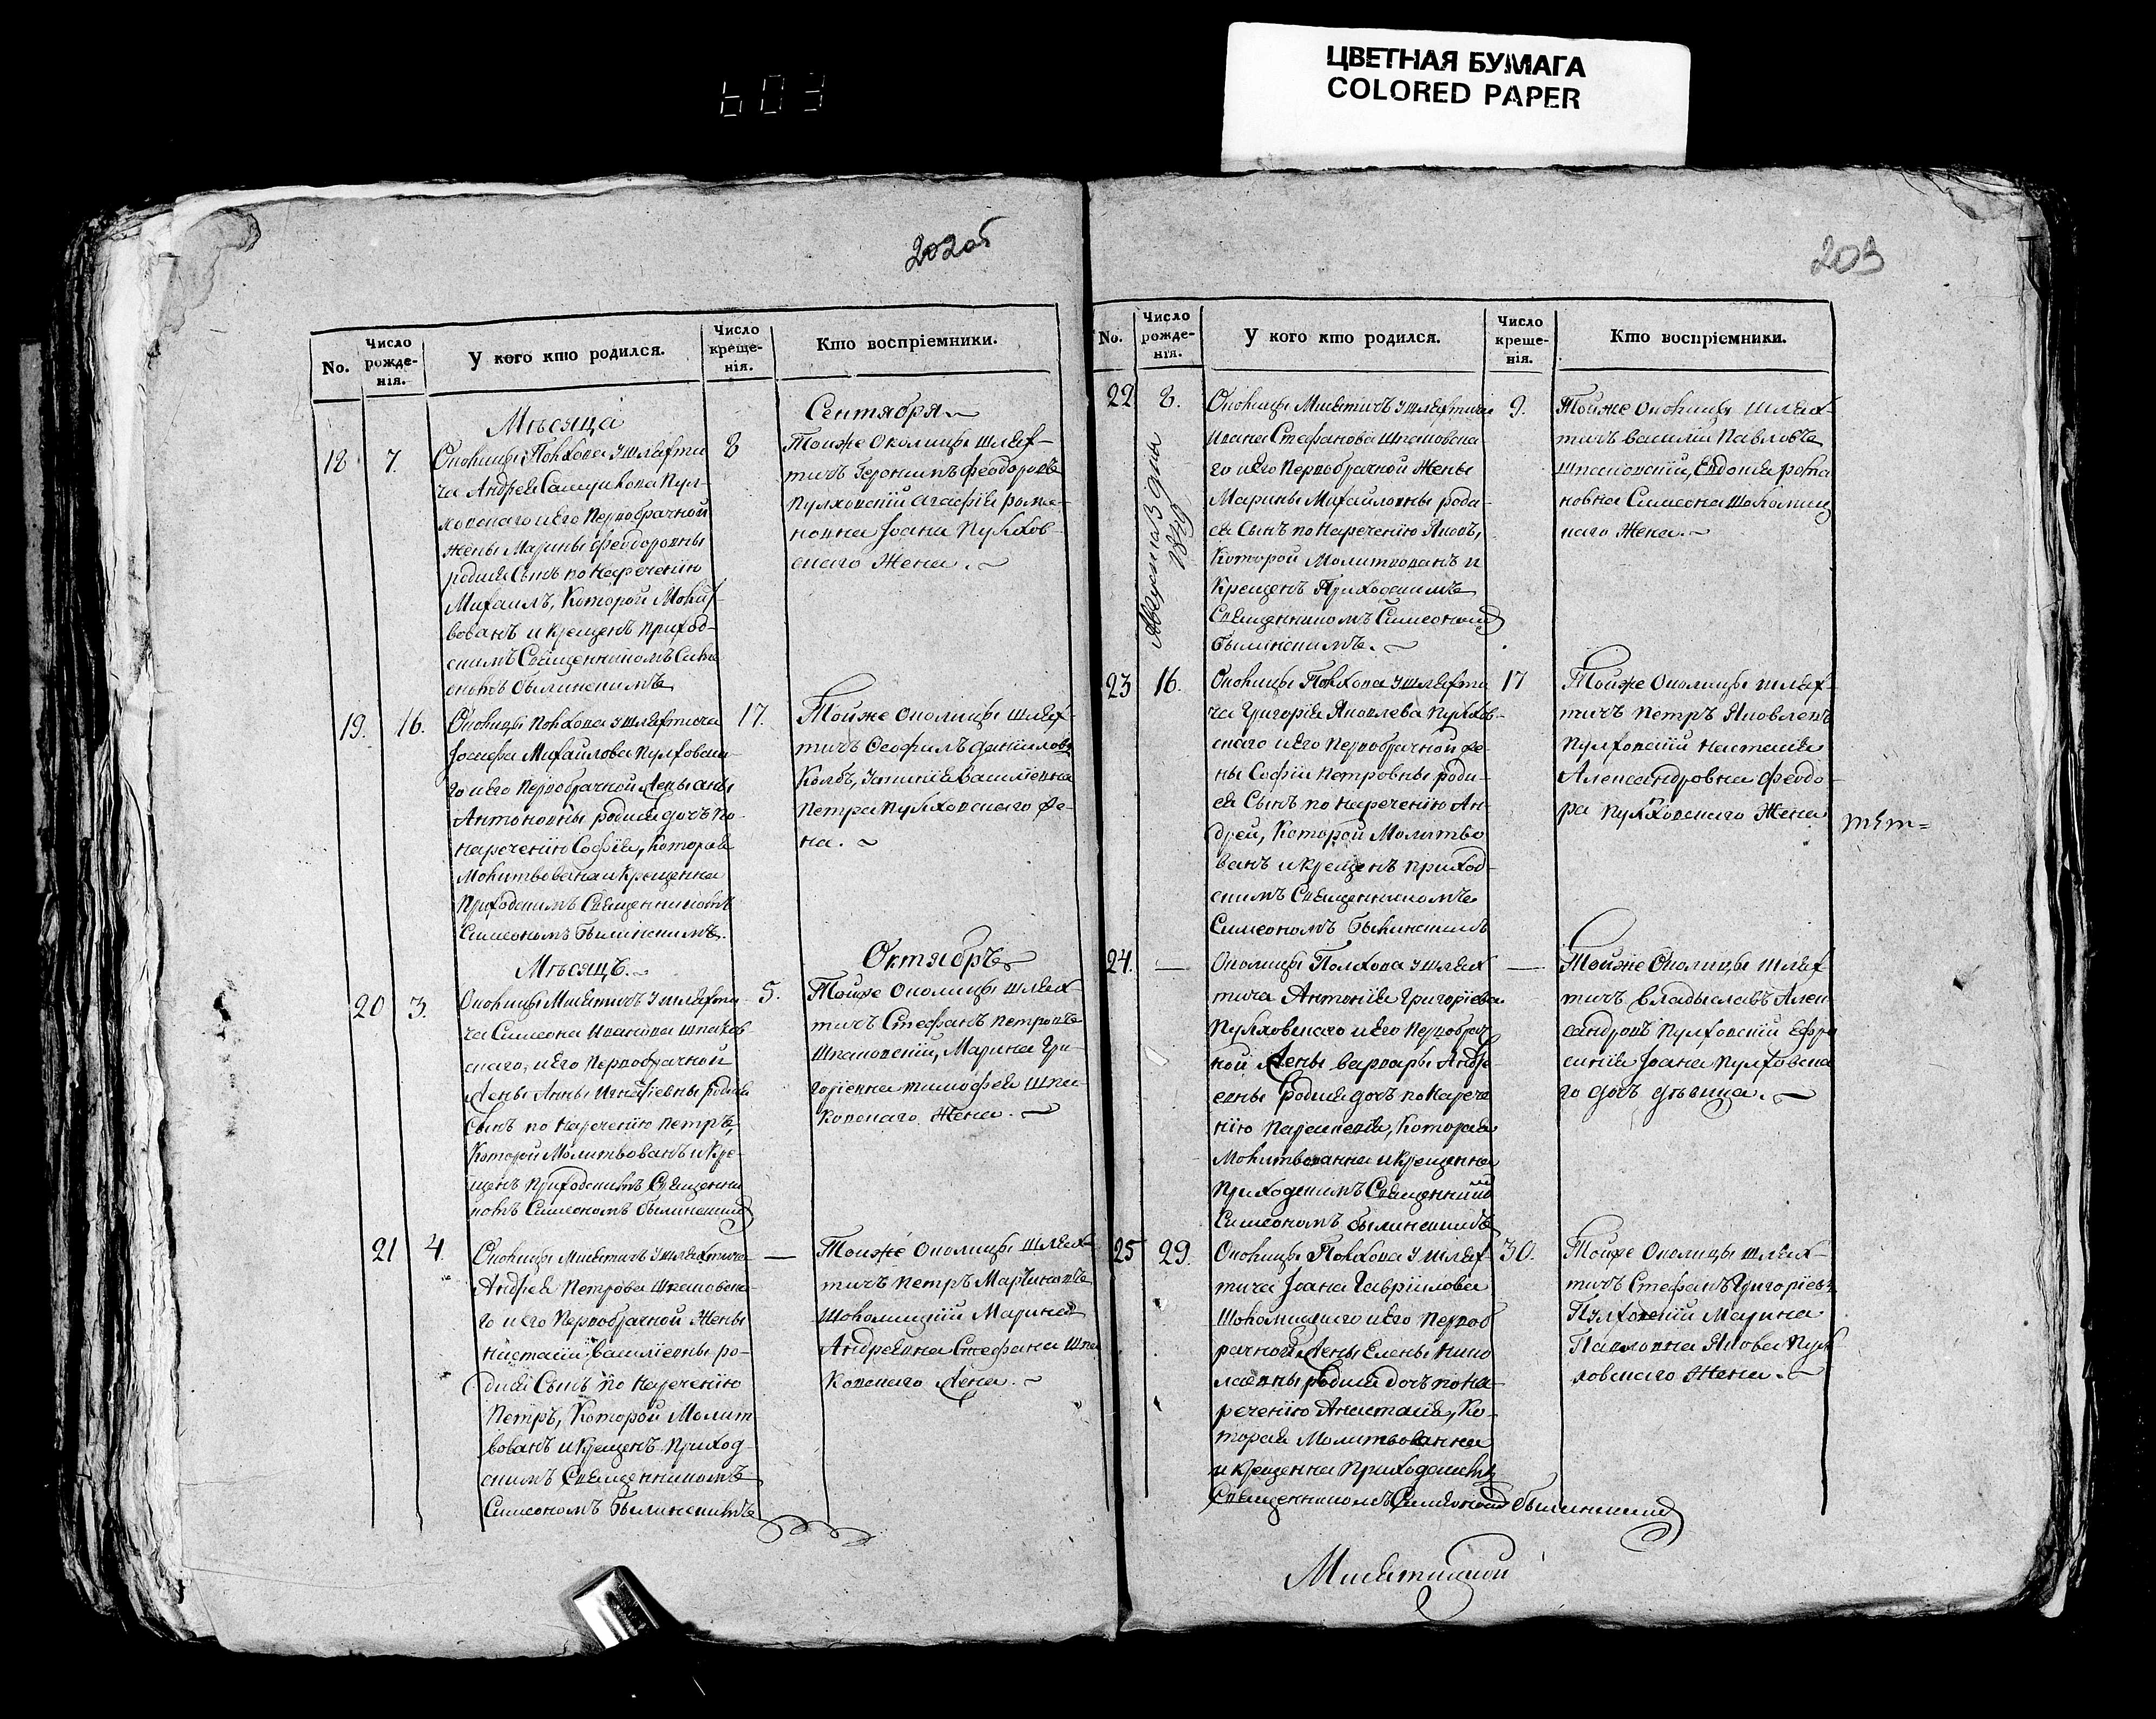 ЦВЕТНАЯ БУМАГА
COLORED PAPER
603
202об
No.
Число рожде-нія.
У кого кто родился.
Число креще-нія.
Кто воспріемники.
Мѣсяца
Сентября
18
7.
Околицы Полхова у шляхти
ча Андрея Самуилова Пул-
ховскаго и его Первобрачной
жены Марины Феодоровны
родился Сынъ по Наречению
Михаилъ, Которой Молит
вованъ и крещенъ приход-
скимъ Священникомъ Симе
ономъ Былинскимъ
8
Тойже Околицы шлях-
тичъ Іеронимъ Феодоровъ
Пулховскій Агафія рома-
новна Іоана Пулхов-
скаго Жена.
19.
16.
Околицы Полхова у шляхтича
Іосифа Михайлова Пулховска-
го и его Первобрачной Жены Аны
Антоновны родися дочъ по
наречению Софія, Которая
Молитвована и крещенна
Приходскимъ Священникомъ
Симеономъ Былинскимъ.
17.
Тойже Околицы шлях-
тичъ Феофилъ Даниловъ
Колбъ, Василіевна
Петра Пулховскаго Же-
на.
Мѣсяцъ.
Октябръ
20
3.
Околицы Мисятичъ у шляхти-
ча Симеона Иванова Шпаков
скаго, и его Первобрачной
Жены Анны Игнатіевны родися
Сынъ по Наречению Петръ,
Которой Молитвованъ и Кре-
щенъ Приходскимъ Священни
комъ Симеономъ Былинскимъ
5.
Тойже Околицы шлях-
тичъ Стефанъ Петровъ
Шпаковскій, Марина Гри-
горіевна тимофея Шпа-
ковскаго Жена.
21
4.
Околицы Мисятичъ у шляхтича
Андрея Петрова Шпаковска-
го и его Первобрачной Жены
Настасіи Василіевны ро-
дися Сынъ по Наречению
Петръ, Которой Молит
вованъ и крещенъ Приход
скимъ Священникомъ
Симеономъ Былинскимъ
—
Тойже Околицы шлях-
тичъ Петръ Мартиновъ
Шоломицкій Марина
Андреевна Стефана Шпа
ковскаго Жена.
203
No.
Число рожде-нія.
У кого кто родился.
Число креще-нія.
Кто воспріемники.
22
8.
Околицы Мисятичъ у шляхтича
Ивана Стефанова Шпаковска
го и его Первобрачной Жены
Марины Михайловны роди-
ся Сынъ по Наречению Яковъ,
Которой Молитвованъ и
Крещенъ Приходскимъ
Священникомъ Симеономъ
Былинскимъ.
9.
Тойже Околицы шлях-
тичъ Василій Павловъ
Шпаковскій, Евдокія рома
новна Симеона Шоломиц
каго Жена.
23
16.
Околицы Полхова у шляхти
ча Григорія Яковлева Пулхов-
скаго и его Первобрачной же-
ны Софіи Петровны роди-
ся Сынъ по наречению Ан-
дрей, Которой Молитво
ванъ и крещенъ приход-
скимъ Священникомъ
Симеономъ Былинскимъ
17
Тойже Околицы шлях-
тичъ Петръ Яковлевъ
Пулховскій Настасія
Александровна Феодо-
ра Пулховскаго Жена
24.
—
Околицы Полхова у шлях
тича Антонія Григоріева
Пулховскаго и его Первобрач
ной Жены Варвары Андре-
евны родися дочъ по Нарече
нію Параскевія, Которая
Молитвованна и крещенна
Приходскимъ Священником
Симеономъ Былинскимъ
—
Тойже Околицы шлях
тичъ Владыславъ Алек-
сандровъ Пулховскій Ефро
синія Іоана Пулховска
го дочъ дѣвица.
25
29.
Околицы Полхова у шлях-
тича Іоана Гавріилова
Шоломицкаго и его Первоб
рачной Жены Елены Нико
лаевны родися дочъ по на-
речению Анастасія, Ко-
торая Молитвованна
и крещенна Приходскимъ
Священникомъ Симеономъ Былинскимъ
30.
Тойже Околицы шлях-
тичъ Стефанъ Григоріевъ
Пулховскій Марина
Павловна Якова Пул
ховскаго Жена.